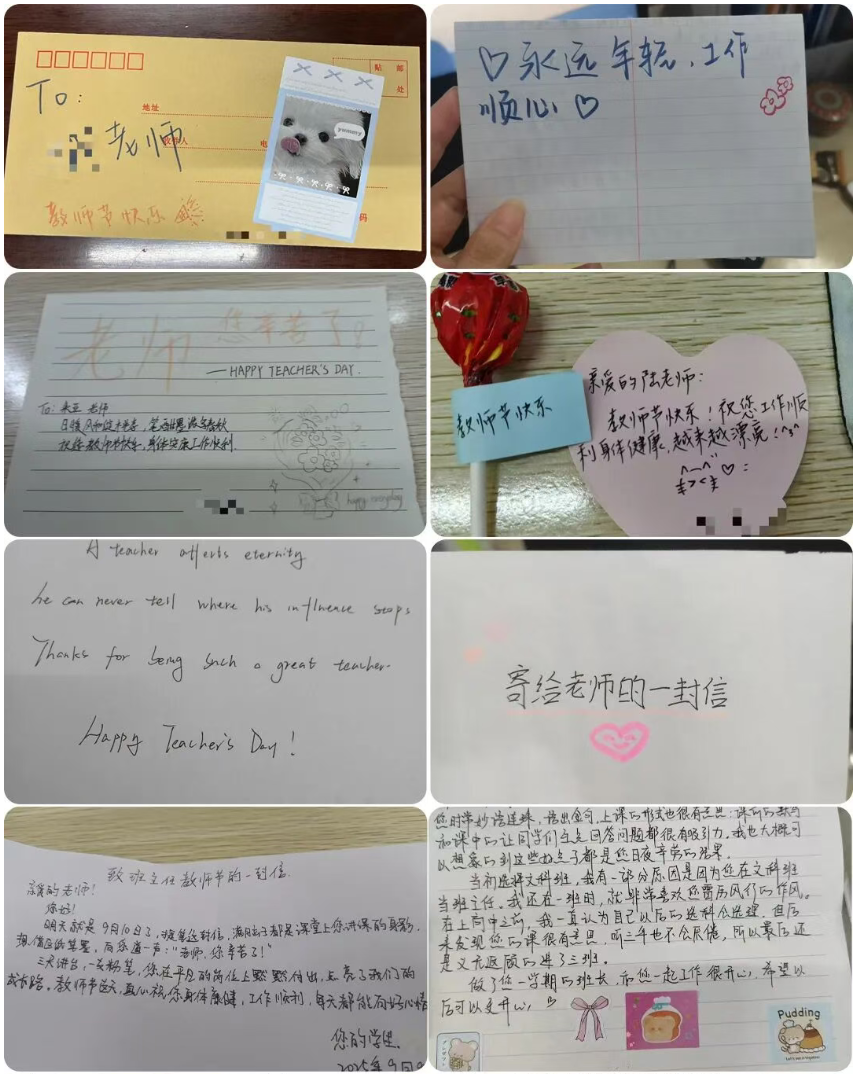 To:
老师
贴 邮
处
地址
yummy
教师节快乐
码
永远年轻,工作
顺心
老师 您辛苦了
—HAPPY TEACHER'S DAY.
To: 老师
祝您教师节快乐,身体安康工作顺利.
happy everyday
教师节快乐
亲爱的陆老师:
教师节快乐!祝您工作顺
利身体健康,越来越漂亮!^3^
A teacher affects eternity
he can never tell where his influence stops
Thanks for being such a great teacher.
Happy Teacher's Day!
寄给老师的一封信
致班主任教师节的一封信.
亲爱的老师!
您好!
明天就是9月10日了,提笔写这封信,满脑子都是课堂上您讲课的身影,
想借这封信,向您道一声:“老师,您辛苦了!”
三尺讲台,一支粉笔,您在平凡的岗位上默默付出,点亮了我们的
成长路。教师节这天,真心祝您身体康健,工作顺利,每天都能有好心情
您的学生.
2025年9月
您时常妙语连珠,语出金句,上课的形式也很有意思:课前的
和课中的让同学们主点回答问题都很有吸引力。我也大概可
以想象的到这些好点子都是您日夜辛劳的结果。
当初选择文科班,我有一部分原因是因为您在文科班
当班主任。我还在一班时,就非常喜欢您雷厉风行的作风。
在上高中之前,我一直认为自己以后的选科会选理,但后
来发现您的课很有意思,听三年也不会厌倦,所以最后还
是义无返顾的进了三班。
做了您一学期的班长,和您一起工作很开心,希望以
后可以更开心,
Pudding